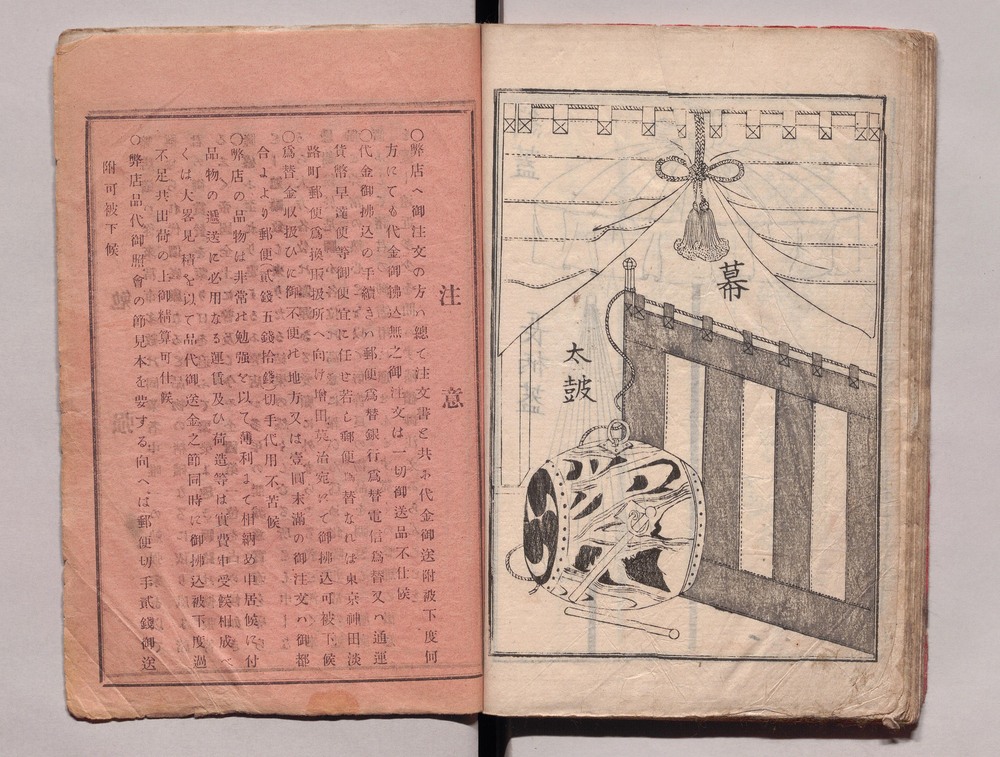 幕
太皷
注意
〇弊店ヘ御注文の方ハ總て注文書と共ニ代金御送附被下度何
方にても代金御拂込無之御注文は一切御送品不仕候
〇代金御拂込の手續きハ郵便爲替銀行爲替電信爲替又ハ通運
貨幣早達便等御便宜に任せ若し郵便爲替なれば東京神田淡
路町郵便爲換取扱所へ向け増田英治宛にて御拂込可被下候
〇爲替金収扱ひに御不便の地方又は壹圓未滿の御注文ハ御都
合より郵便貳錢五錢拾錢切手代用不苦候
〇弊店の品物は非常の勉強を以て薄利にて相納め申居候に付
品物の遞送に必用なる運賃及ひ荷造等は實費申受候相成べ
くは大畧見積を以て品代御送金之節同時に御拂込被下度過
不足共出荷の上御精算可仕候
〇弊店品代御照會の節見本を要する向へは郵便切手貳錢御送
附可被下候